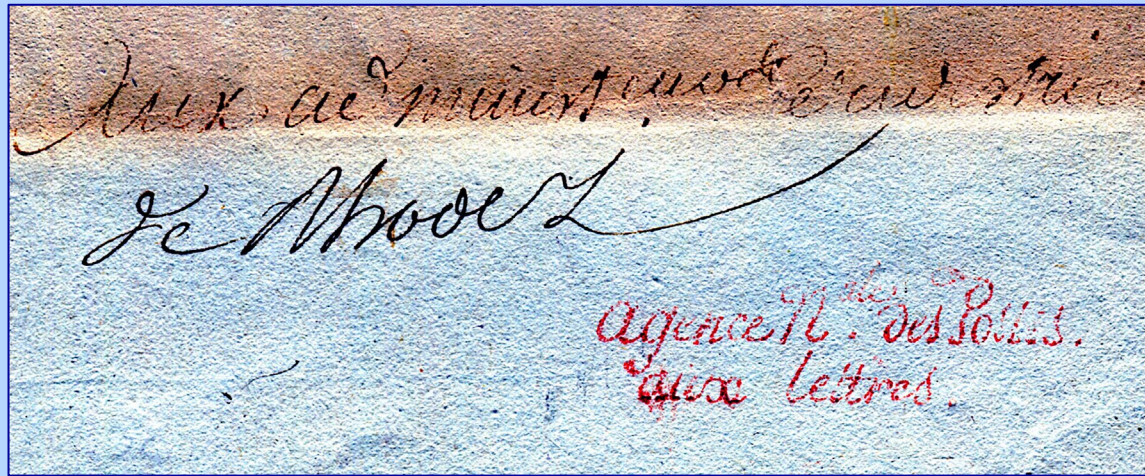 Aux administrateurs du district
de Rhodez
agence N.ale des Postes.
aux lettres.